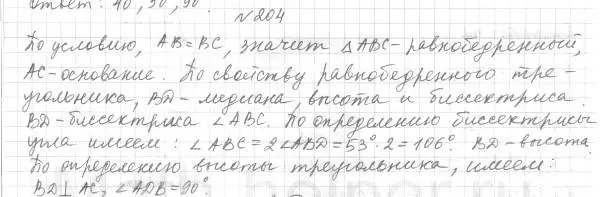 Ответ: 40°, 50°, 90°
№204
По условию, AB=BC, значит △ABC-равнобедренный,
AC-основание. По свойству равнобедренного тре-
угольника, BD-медиана, высота и биссектриса.
BD-биссектриса ∠ABC. По определению биссектрисы
угла имеем: ∠ABC=2∠ABD=53°·2=106°. BD-высота.
По определению высоты треугольника, имеем:
BD⊥AC, ∠ADB=90°.